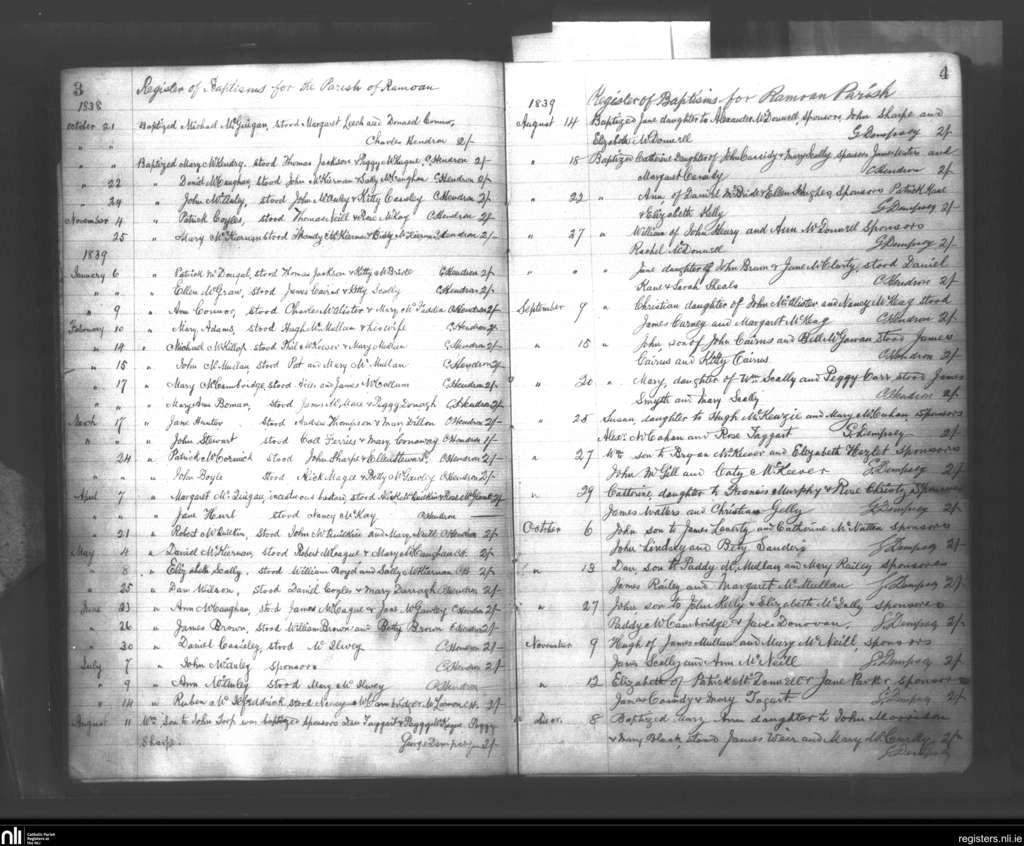 3
Register of Baptisms for the Parish of Ramoan
1838
October 21 Baptized Michael McGuigan, stood Margaret Leech and Donald Connor,
Charles Hendron 2/-
" " Baptized Mary McKendry, stood Thomas Jackson & Peggy McKague, C. Hendron 2/-
" 22 " Daniel McCaughan, stood John McKiernan & Sally McCaughan C. Hendron 2/-
" 29 " John McAuley, stood John McAuley & Kitty Cassley C. Hendron 2/-
November 4 " Patrick Coyles, stood Thomas Neill & Rose McKay C. Hendron 2/-
25 " Mary McKiernan stood McKiernan & McKiernan Hendron 2/-
1839
January 6 " Patrick McDougal, stood Thomas Jackson & Kitty McBride C. Hendron 2/-
" " " Ellen McGraw, stood James Cairns & Betty Scally C. Hendron 2/-
" 9 " Ann Connor, stood Charles McAlister & Mary McFadden C. Hendron 2/-
February 10 " Mary Adams, stood Hugh McMullan & his wife C. Hendron 2/-
" 14 " Michael McKillop stood Phil McKeever & Mary C. Hendron 2/-
" 15 " John McMullan, stood Pat and Mary McMullan C. Hendron 2/-
" 17 " Mary McCambridge, stood and James McCollum C. Hendron 2/-
" " " Mary Ann Boman, stood James McMare & Peggy Donagh C. Hendron 2/-
March 17 " Jane Hunter stood Andrew Thompson & Mary Dillon C. Hendron 2/-
" " " John Stewart stood Coll Ferries & Mary Conoway C. Hendron 1/-
" 24 " Patrick McCormick stood John Sharpe & Ellen Stewart C. Hendron 2/-
" " " John Boyle stood Nick Magee & Betty McGawley C. Hendron 2/-
April 7 " Margaret McGuigan, stood Nick McQuilkin & Rose 2/-
" " " Jane Hurl stood Nancy McKay C. Hendron
" 21 " Robert McQuilkin, stood John McQuilkin and Mary Neill C. Hendron 2/-
May 4 " Daniel McKiernan, stood Robert McKeague & Mary McCaughan C.H. 2/-
" 8 " Elizabeth Scally, stood William Boyd and Sally McKiernan C.H. 2/-
" 25 " Dan Wilson, stood Daniel Coyles & Mary Darragh C. Hendron 2/-
June 23 " Ann McCaughan, stood James McCague & Jane McGawley C. Hendron 2/-
" 26 " James Brown, stood William Brown and Betty Brown C. Hendron 2/-
" 30 " Daniel Cassley, stood Mc C. Hendron 2/-
July 7 " John McAuley sponsors C. Hendron 2/-
" 9 " Ann McAuley stood Mary McIlvey C. Hendron
" 14 " Ruben stood Nancy 2/-
August 11 Wm son to John Torp was baptized sponsors Dan Taggart & Peggy McKague Peggy
Sharpe. George Dempsey 2/-
4
Register of Baptisms for Ramoan Parish
1839
August 14 Baptized Jane daughter to Alexander McDonnell, sponsors, John Sharpe and
Elizabeth McDonnell G. Dempsey 2/-
" 18 Baptized Catherine Daughter of John Cassidy & Mary Scally sponsors James Waters and
Margaret Cassidy C. Hendron 2/-
" 22 " Ann of Daniel McBride & Ellen Hughes, Sponsors Patrick Kane
& Elizabeth Kelly G. Dempsey 2/-
" 27 " William of John Henry and Ann McDonnell Sponsors
Rachel McDonnell G. Dempsey 2/-
" " " Jane daughter of John Brown & Jane McClarty, stood Daniel
Kane & Sarah Sheals C. Hendron 2/-
September 9 " Christian daughter of John McAlister and Nancy McKeag stood
James Carney and Margaret McKeag C. Hendron 2/-
" 15 " John son of John Cairns and Bell McGavran stood James
Cairns and Kitty Cairns C. Hendron 2/-
" 20 " Mary, daughter of Wm Scally and Peggy Carr stood James
Smyth and Mary Scally C. Hendron 2/-
" 25 Susan, daughter to Hugh McKenzie and Mary McCahan sponsors
Alex. McCahan and Rose Taggart G. Dempsey 2/-
" 27 Wm son to Bryan McKeever and Elizabeth Hezlet Sponsors
John McGill and Caty McKeever G. Dempsey 2/-
" 29 Catherine, daughter to Francis Murphy & Rose Christy, Sponsors
James Waters and Christian Gelly G. Dempsey 2/-
October 6 John son to James Laverty and Catherine McVatten sponsors
John Lindsey and Betty Sanders G. Dempsey 2/-
" 13 Dan son to Paddy McMullan and Mary Railey sponsors
James Railey and Margaret McMullan G. Dempsey 2/-
" 27 John son to John Kelly & Elizabeth McSally sponsors
Paddy McCambridge & Jane Donovan. G. Dempsey 2/-
November 9 Hugh of James Mullan and Mary McNeill, sponsors
James Scally and Ann McNeill G. Dempsey 2/-
" 12 Elizabeth of Patrick McDonnell & Jane Parker sponsors
James Cassidy & Mary Tagart. G. Dempsey 2/-
Decr. 8 Baptized Mary Ann daughter to John Morrison
& Mary Black, stood James Weir and Mary McCurdy, 2/-
G. Dempsey
nli
Catholic Parish
Registers at
the NLI
registers.nli.ie